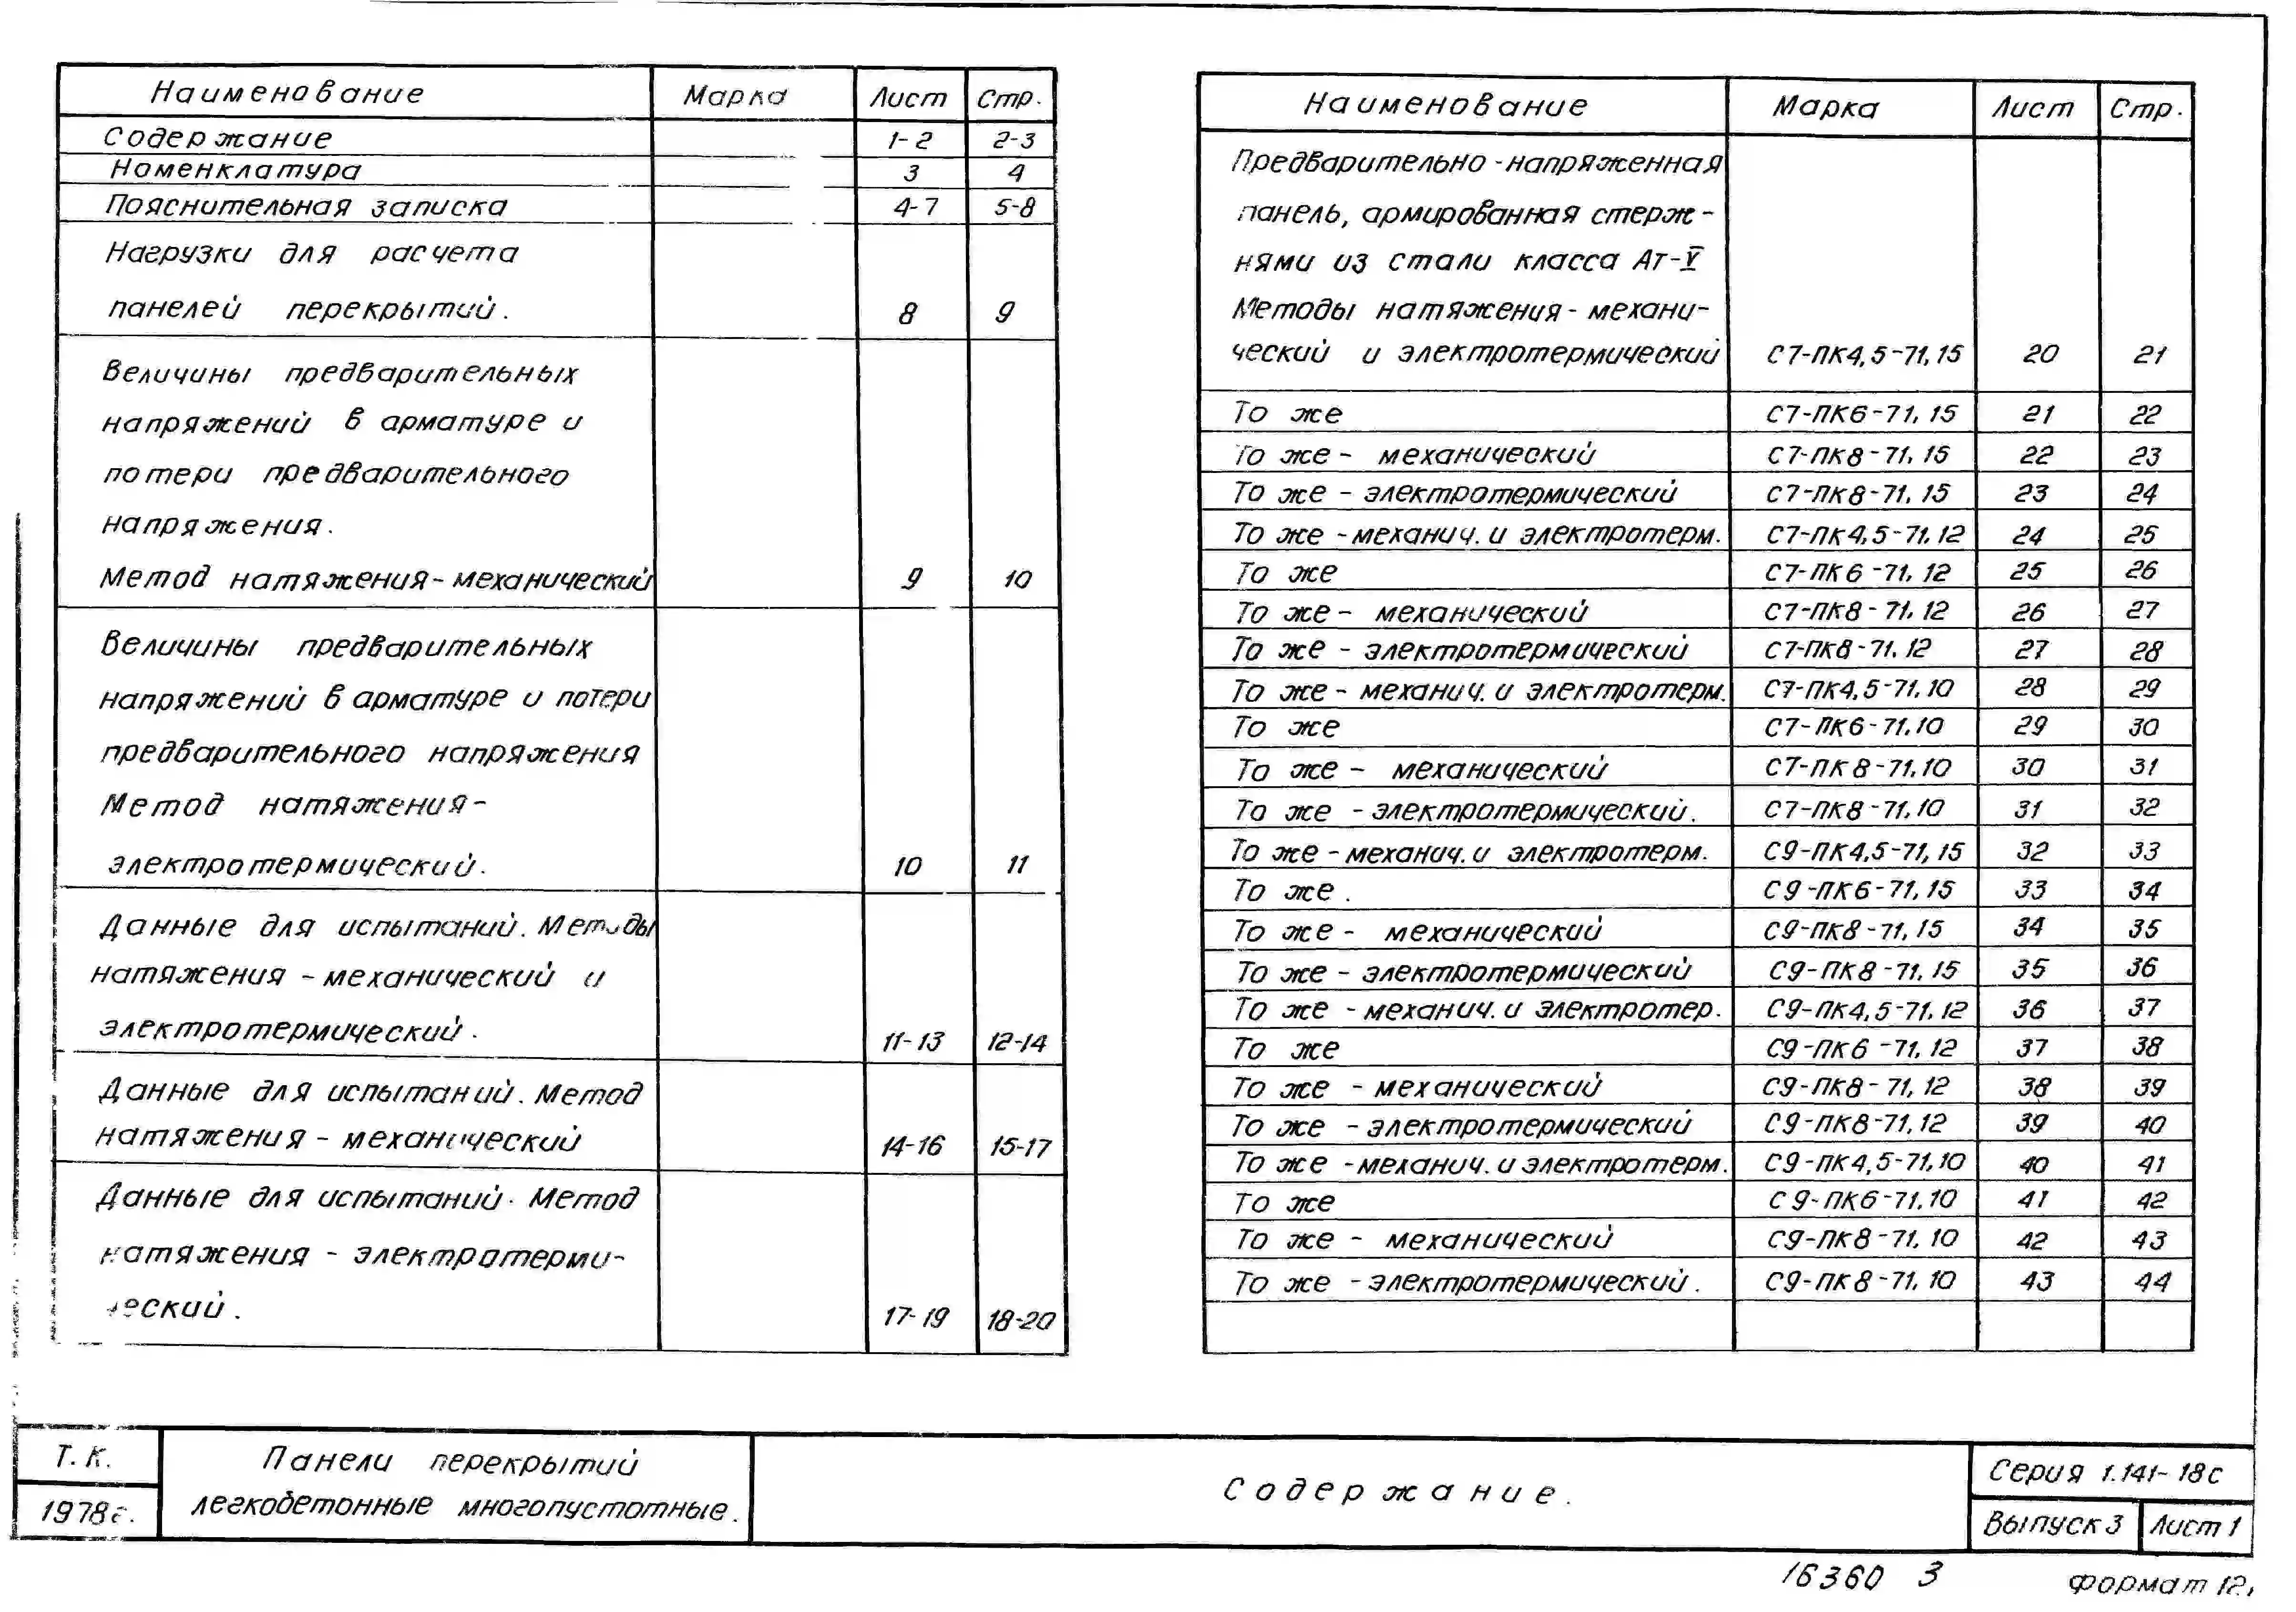 Наименование Марка Лист Стр.
Содержание 1-2 2-3
Номенклатура 3 4
Пояснительная записка 4-7 5-8
Нагрузки для расчета
панелей перекрытий. 8 9
Величины предварительных
напряжений в арматуре и
потери предварительного
напряжения.
Метод натяжения-механический 9 10
Величины предварительных
напряжений в арматуре и потери
предварительного напряжения
Метод натяжения-
электротермический. 10 11
Данные для испытаний. Методы
натяжения - механический и
электротермический. 11-13 12-14
Данные для испытаний. Метод
натяжения - механический 14-16 15-17
Данные для испытаний. Метод
натяжения - электротерми-
ческий. 17-19 18-20
Наименование Марка Лист Стр.
Предварительно-напряженная
панель, армированная стерж-
нями из стали класса Ат-V
Методы натяжения-механи-
ческий и электротермический С7-ПК4,5-71,15 20 21
То же С7-ПК6-71,15 21 22
То же - механический С7-ПК8-71,15 22 23
То же - электротермический С7-ПК8-71,15 23 24
То же -механич. и электротерм. С7-ПК4,5-71,12 24 25
То же С7-ПК6-71,12 25 26
То же - механический С7-ПК8-71,12 26 27
То же - электротермический С7-ПК8-71,12 27 28
То же - механич. и электротерм. С7-ПК4,5-71,10 28 29
То же С7-ПК6-71,10 29 30
То же - механический С7-ПК8-71,10 30 31
То же - электротермический. С7-ПК8-71,10 31 32
То же - механич. и электротерм. С9-ПК4,5-71,15 32 33
То же. С9-ПК6-71,15 33 34
То же - механический С9-ПК8-71,15 34 35
То же - электротермический С9-ПК8-71,15 35 36
То же - механич. и электротер. С9-ПК4,5-71,12 36 37
То же С9-ПК6-71,12 37 38
То же - механический С9-ПК8-71,12 38 39
То же - электротермический С9-ПК8-71,12 39 40
То же -механич. и электротерм. С9-ПК4,5-71,10 40 41
То же С9-ПК6-71,10 41 42
То же - механический С9-ПК8-71,10 42 43
То же - электротермический. С9-ПК8-71,10 43 44
Т.К.
1978г.
Панели перекрытий
легкобетонные многопустотные.
Содержание.
Серия 1.141-18с
Выпуск 3 Лист 1
16360 3 формат 12